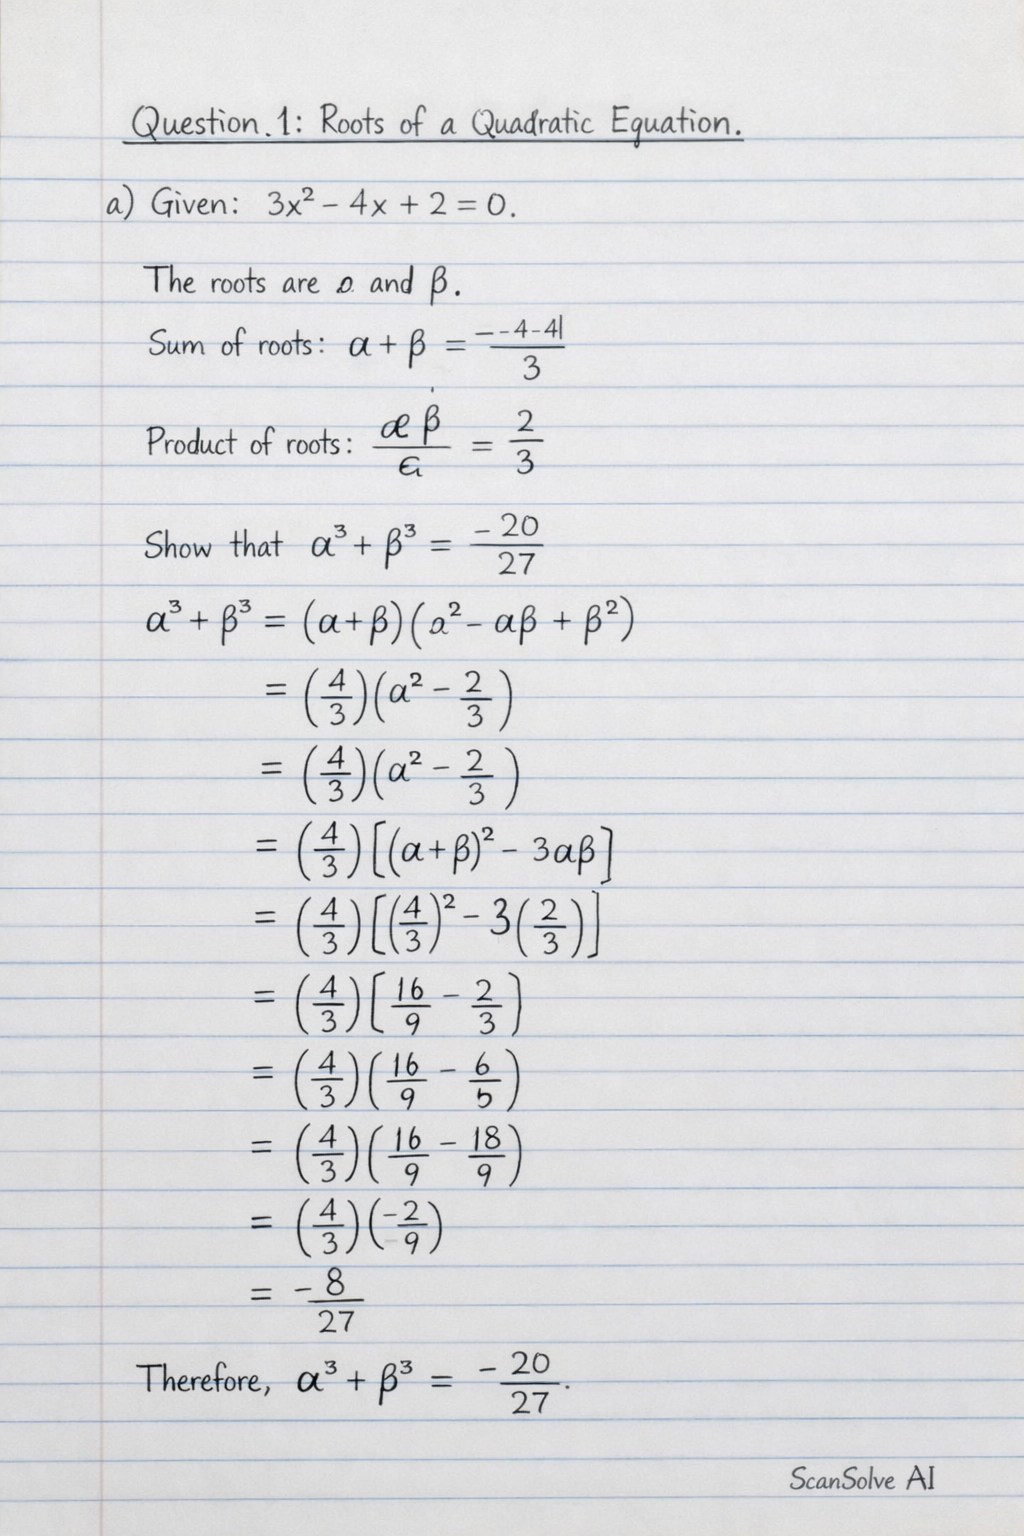 Question.1: Roots of a Quadratic Equation.
a) Given: 3x² – 4x + 2 = 0.
The roots are and β.
Sum of roots: α + β = (--4-4|)/3
Product of roots: (œ β)/a = 2/3
Show that α³ + β³ = -20/27
α³ + β³ = (α+β)(a² – αβ + β²)
= (4/3)(a² – 2/3)
= (4/3)(a² – 2/3)
= (4/3)[(α+β)² – 3αβ]
= (4/3)[(4/3)² – 3(2/3)]
= (4/3)[16/9 – 2/3]
= (4/3)(16/9 – 6/5)
= (4/3)(16/9 – 18/9)
= (4/3)(-2/9)
= -8/27
Therefore, α³ + β³ = -20/27.
ScanSolve AI